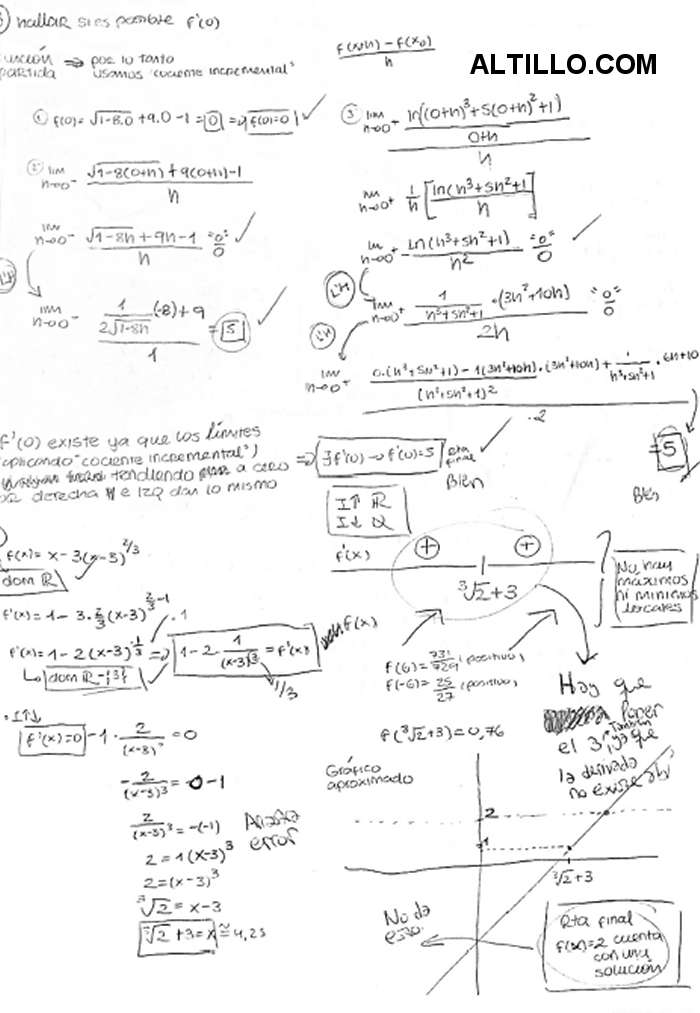 hallar si es posible f'(0)
f(x+h) - f(x0)
h
ALTILLO.COM
función partida => por lo tanto usamos "cociente incremental"
① f(0) = √1-8.0 + 9.0 - 1 = 0 => f(0)=0
② lim h→0⁻ √1-8(0+h) + 9(0+h) - 1
h
lim h→0⁻ √1-8h + 9h - 1 "0"
h 0
L'H
lim h→0⁻ 1/(2√1-8h) (-8) + 9 = 5
1
③ lim h→0⁺ ln((0+h)³+5(0+h)²+1)
0+h
h
lim h→0⁺ 1/h [ln(h³+5h²+1)/h]
lim h→0⁺ ln(h³+5h²+1) "0"
h² 0
L'H
lim h→0⁺ 1/(h³+5h²+1) . (3h²+10h) "0"
2h 0
L'H
lim h→0⁺ 0.(h³+5h²+1) - 1(3h²+10h) . (3h²+10h) + 1/(h³+5h²+1) . 6h+10
(h³+5h²+1)²
.2
= 5
Bien
f'(0) existe ya que los límites
(aplicando "cociente incremental")
tendiendo a cero
por derecha e IZQ dan lo mismo
=> ∃f'(0) → f'(0)=5 Rta final
Bien
I↑ ℝ
I↓ ∅
f(x) = x - 3(x-3)^2/3
dom ℝ
f'(x) = 1 - 3 . 2/3 (x-3)^2/3-1 . 1
f'(x) = 1 - 2(x-3)^-1/3 => 1 - 2 . 1/(x-3)³ = f'(x)
1/3
dom ℝ - {3}
f'(x) + +
³√2+3
No hay
máximos
ni mínimos
locales
f(6) = 731/729 (positivo)
f(-6) = 25/27 (positivo)
f(³√2+3) = 0,76
Hay que
poner
el 3 también, ya que
la derivada
no existe ahí
. I↑↓
f'(x)=0 - 1 - 2/(x-3)³ = 0
- 2/(x-3)³ = -0 - 1
2/(x-3)³ = -(-1)
2 = 1(x-3)³
2 = (x-3)³
³√2 = x-3
³√2 + 3 = x ≅ 4,25
Arrastra
error
Gráfico
aproximado
2
1
³√2+3
No da
eso.
Rta final
f(x)=2 cuenta
con una
solución